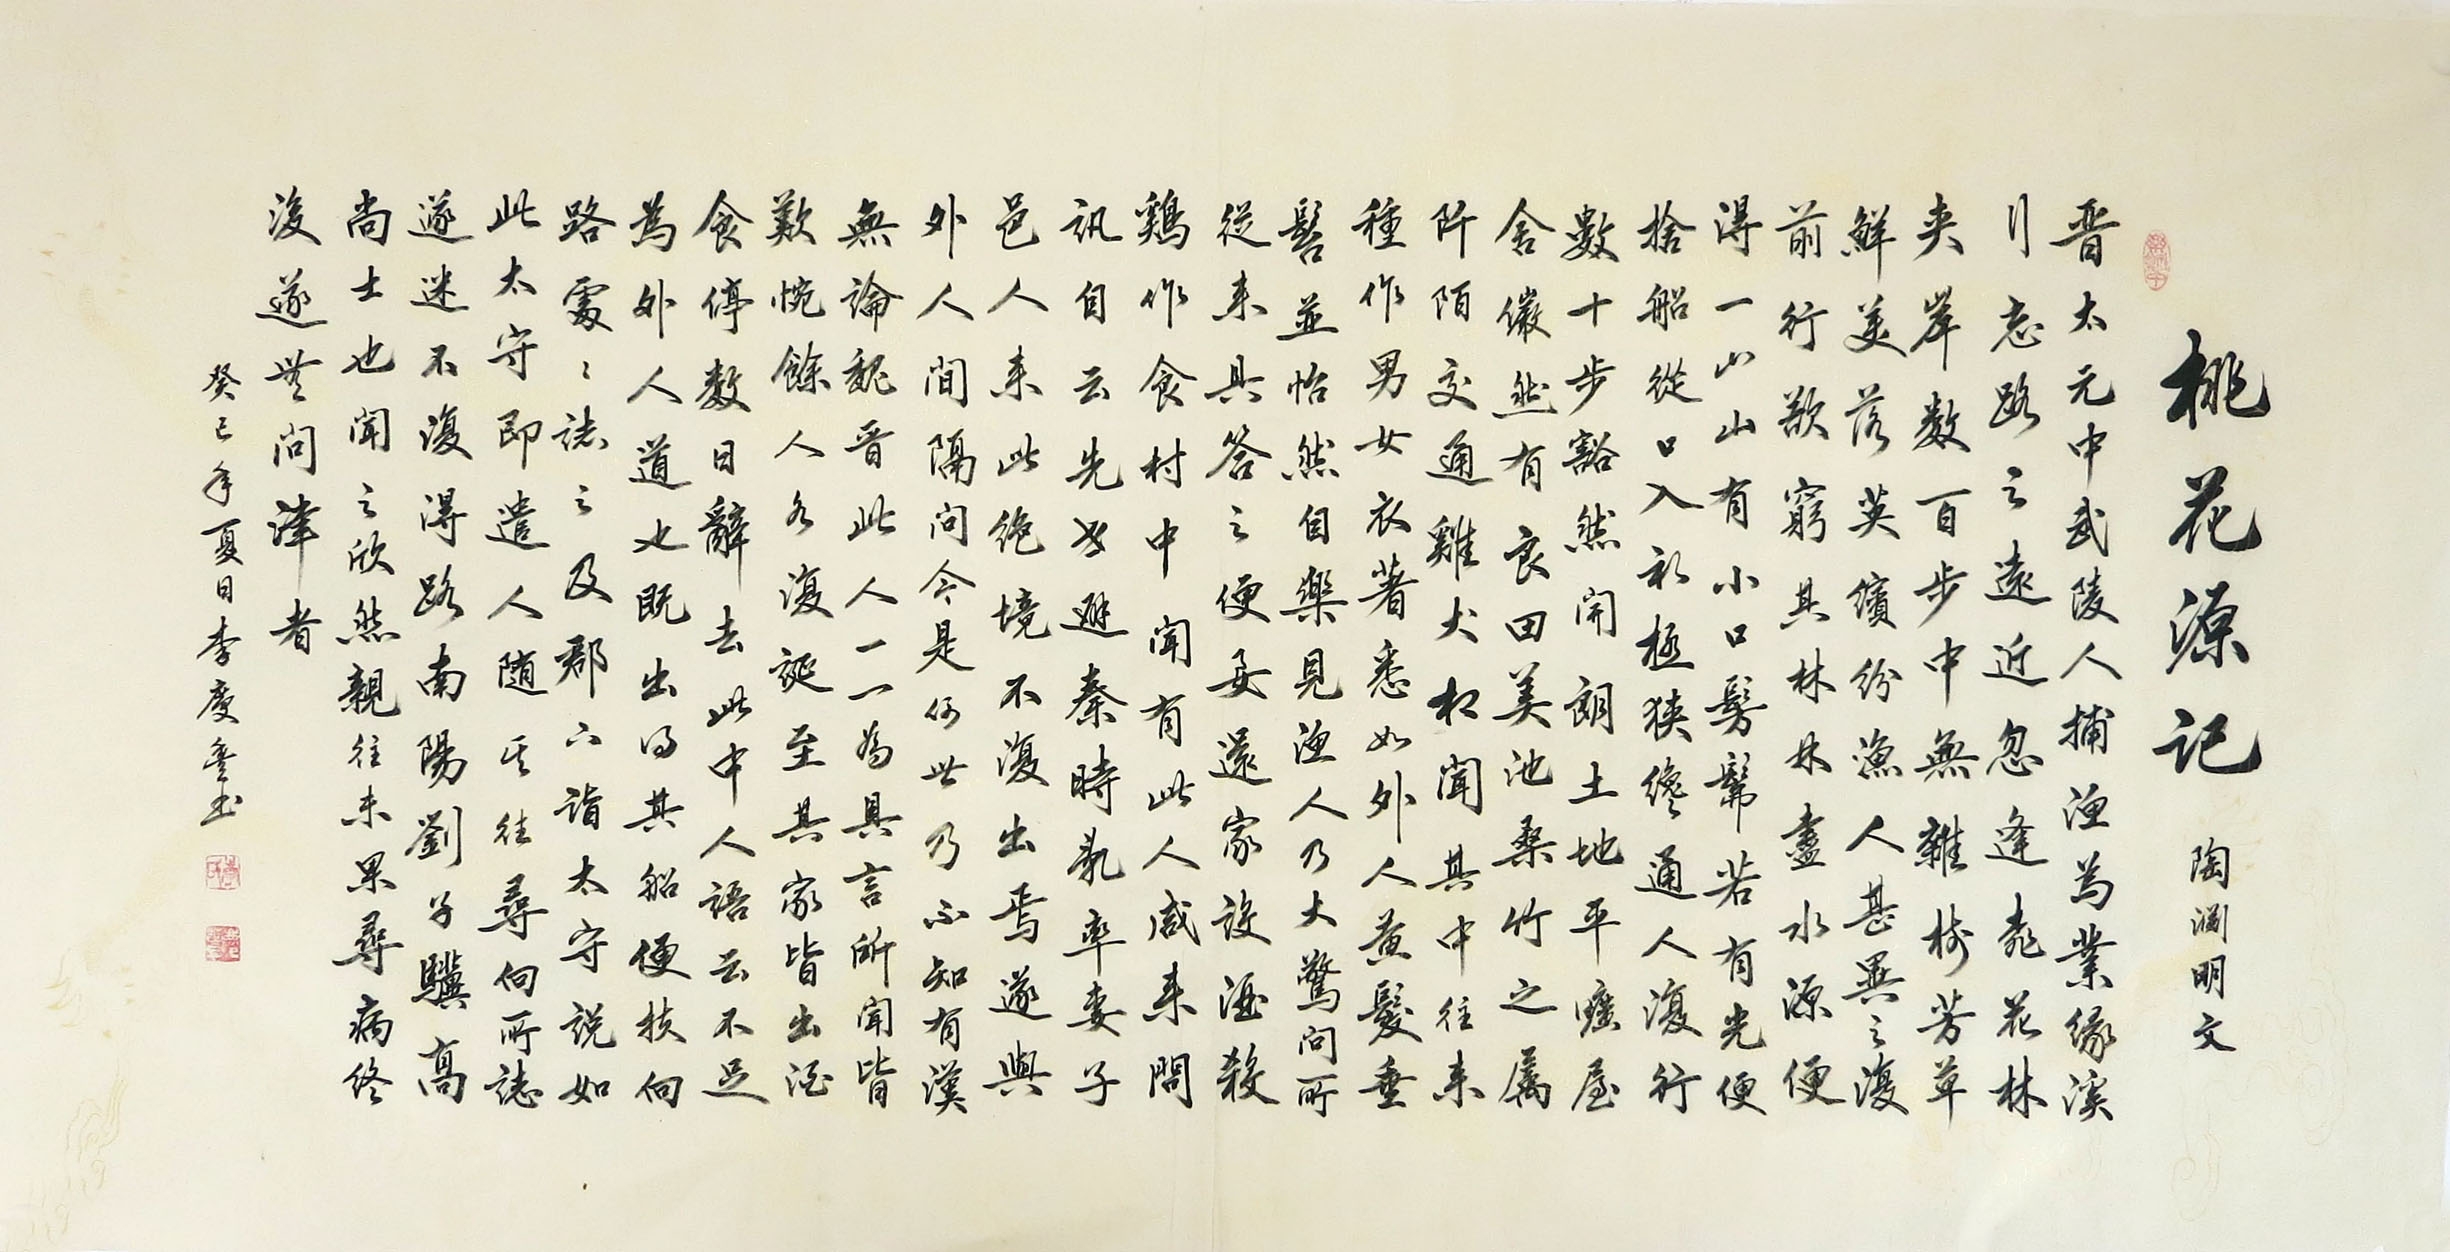 桃花源記 陶渊明文
晋太元中武陵人捕渔為業缘溪
行忘路之遠近忽逢桃花林
夹岸数百步中無雜樹芳草
鮮美落英缤纷渔人甚異之復
前行欲窮其林林盡水源便
得一山山有小口髣髴若有光便
捨船從口入初極狭才通人復行
數十步豁然開朗土地平曠屋
舍儼然有良田美池桑竹之属
阡陌交通雞犬相聞其中往来
種作男女衣著悉如外人黄髮垂
髫並怡然自樂見渔人乃大驚问所
從来具答之便要還家設酒殺
鷄作食村中闻有此人咸来問
訊自云先世避秦時亂率妻子
邑人来此绝境不復出焉遂與
外人间隔问今是何世乃不知有漢
無論魏晋此人一一為具言所闻皆
歎惋餘人各復延至其家皆出酒
食停数日辭去此中人語云不足
為外人道也既出得其船便扶向
路處處誌之及郡下詣太守説如
此太守即遣人随其往尋向所誌
遂迷不復得路南陽劉子驥高
尚士也闻之欣然親往未果尋病终
後遂無问津者
癸巳年夏日李慶豐书